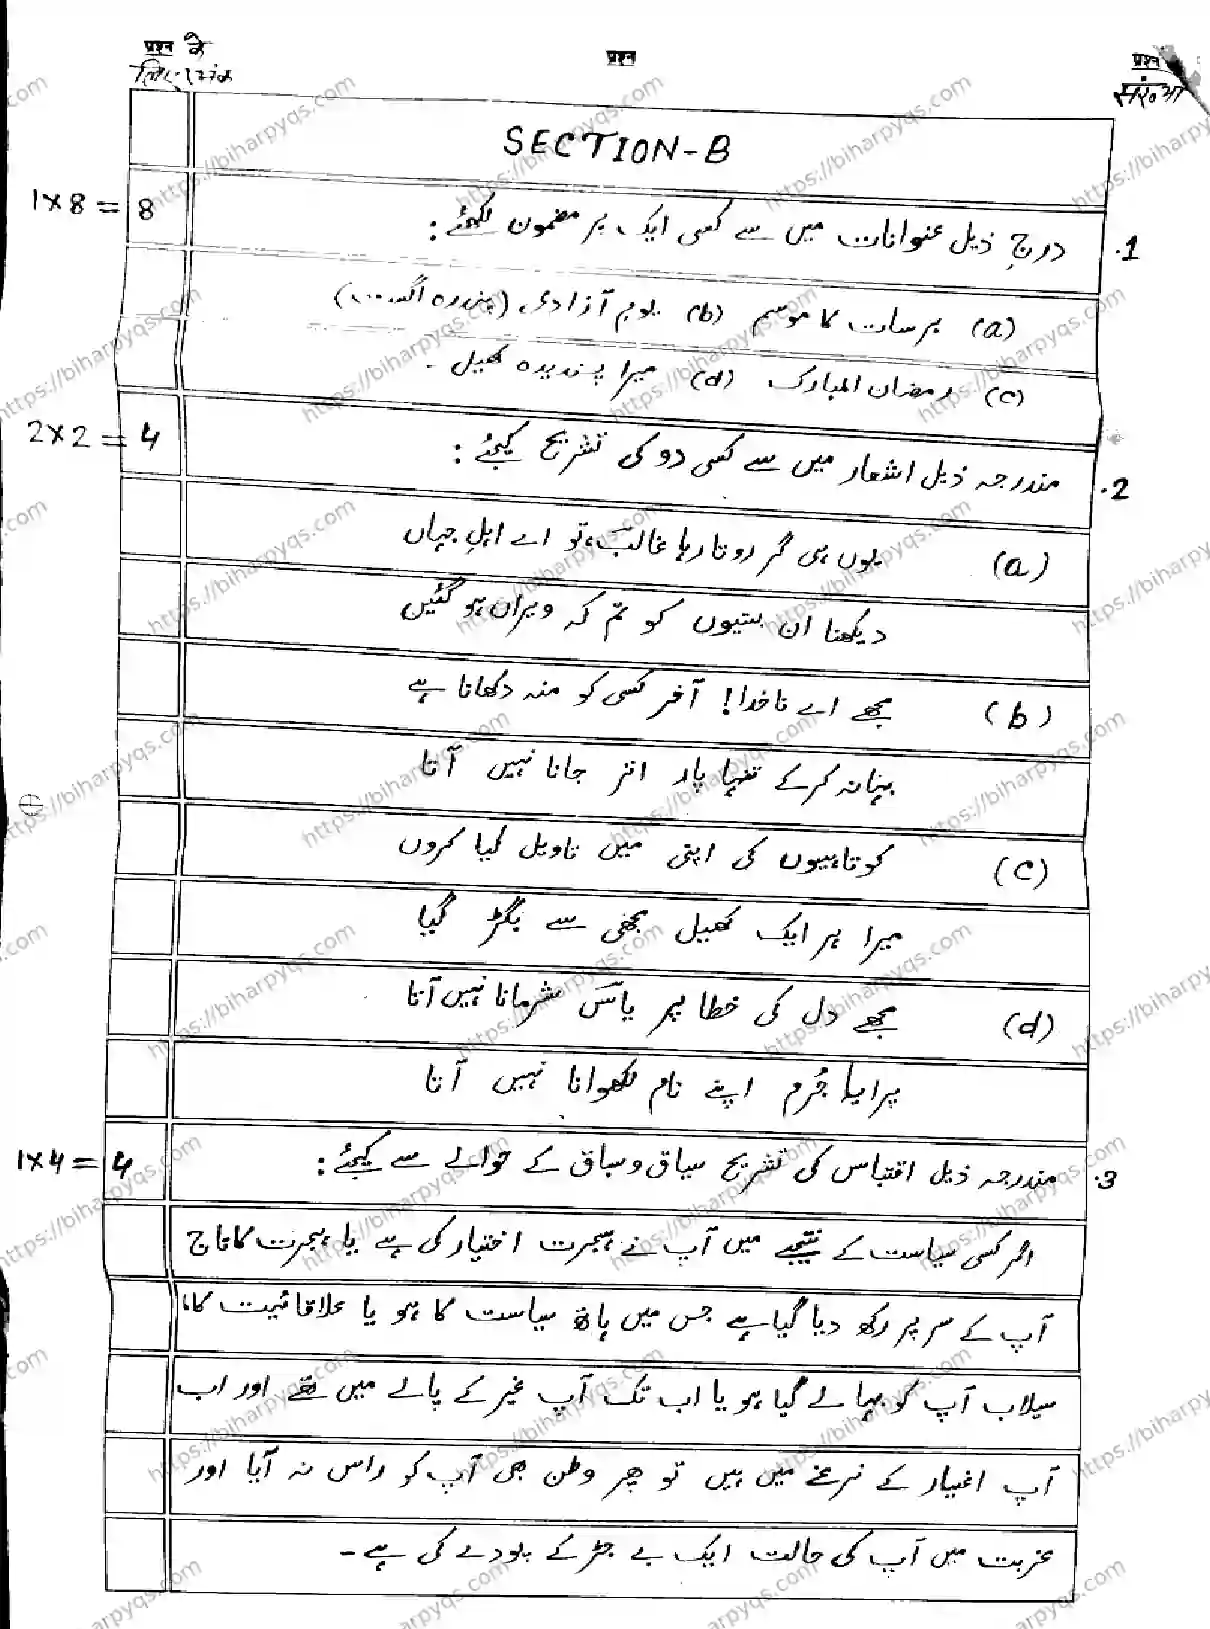 प्रश्न के
प्रश्न
प्रश्न
SECTION-B
1x8 = 8
1. درج ذیل عنوانات میں سے کسی ایک پر مضمون لکھئے:
(a) برسات کا موسم (b) یوم آزادی (پندرہ اگست)
(c) رمضان المبارک (d) میرا پسندیدہ کھیل۔
2x2 = 4
2. مندرجہ ذیل اشعار میں سے کسی دو کی تشریح کیجئے:
(a) یوں ہی گر روتا رہا غالب، تو اے اہلِ جہاں
دیکھنا ان بستیوں کو تم کہ ویراں ہو گئیں
(b) مجھے اے ناخدا! آخر کسی کو منہ دکھانا ہے
بہانہ کر کے تنہا پار اتر جانا نہیں آتا
(c) کوتاہیوں کی اپنی میں تاویل کیا کروں
میرا ہر ایک کھیل مجھی سے بگڑ گیا
(d) مجھے دل کی خطا پر یاس شرمانا نہیں آتا
پرایا جُرم اپنے نام لکھوانا نہیں آتا
1x4 = 4
3. مندرجہ ذیل اقتباس کی تشریح سیاق و سباق کے حوالے سے کیجئے:
اگر کسی سیاست کے نتیجے میں آپ نے ہجرت اختیار کی ہے یا ہجرت کا تاج
آپ کے سر پر رکھ دیا گیا ہے جس میں ہاتھ سیاست کا ہو یا علاقائیت کا،
سیلاب آپ کو بہا لے گیا ہو یا اب تک آپ غیر کے پالے میں تھے اور اب
آپ اغیار کے نرغے میں ہیں تو پھر وطن بھی آپ کو راس نہ آیا اور
غربت میں آپ کی حالت ایک بے جڑ کے پودے کی ہے۔
https://biharpyqs.com